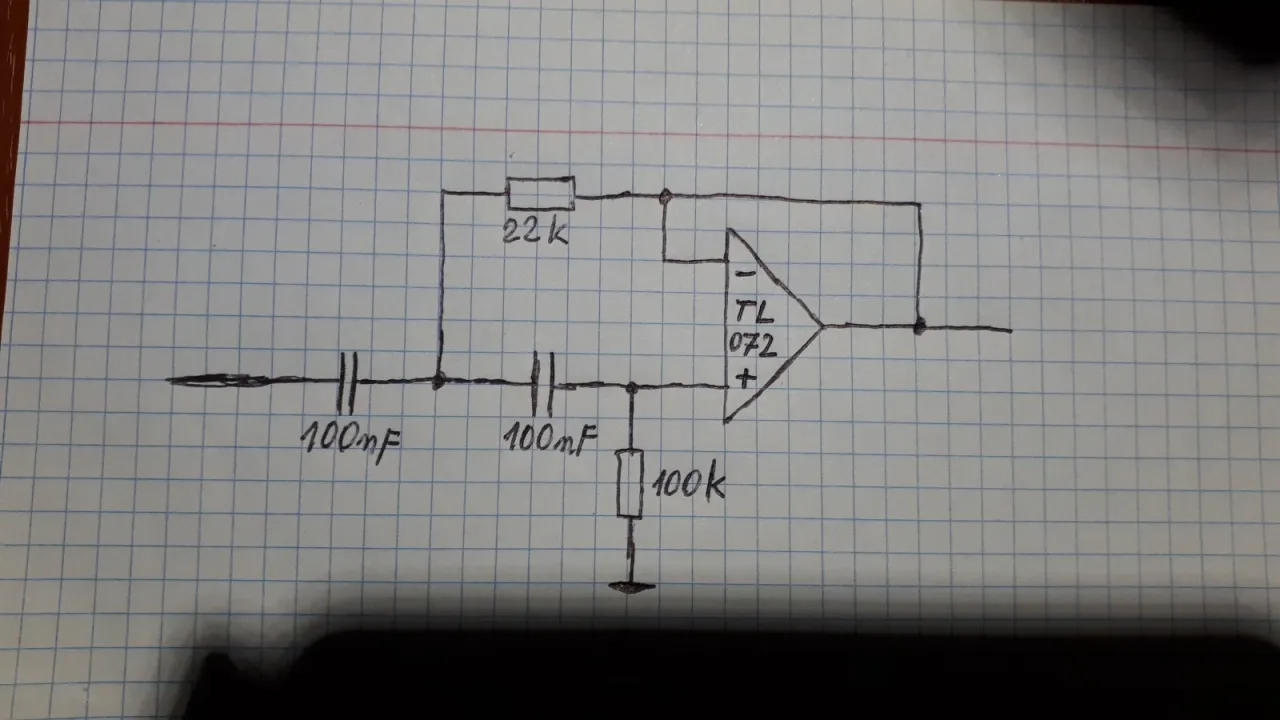 22k
−
TL
072
+
100nF
100nF
100k